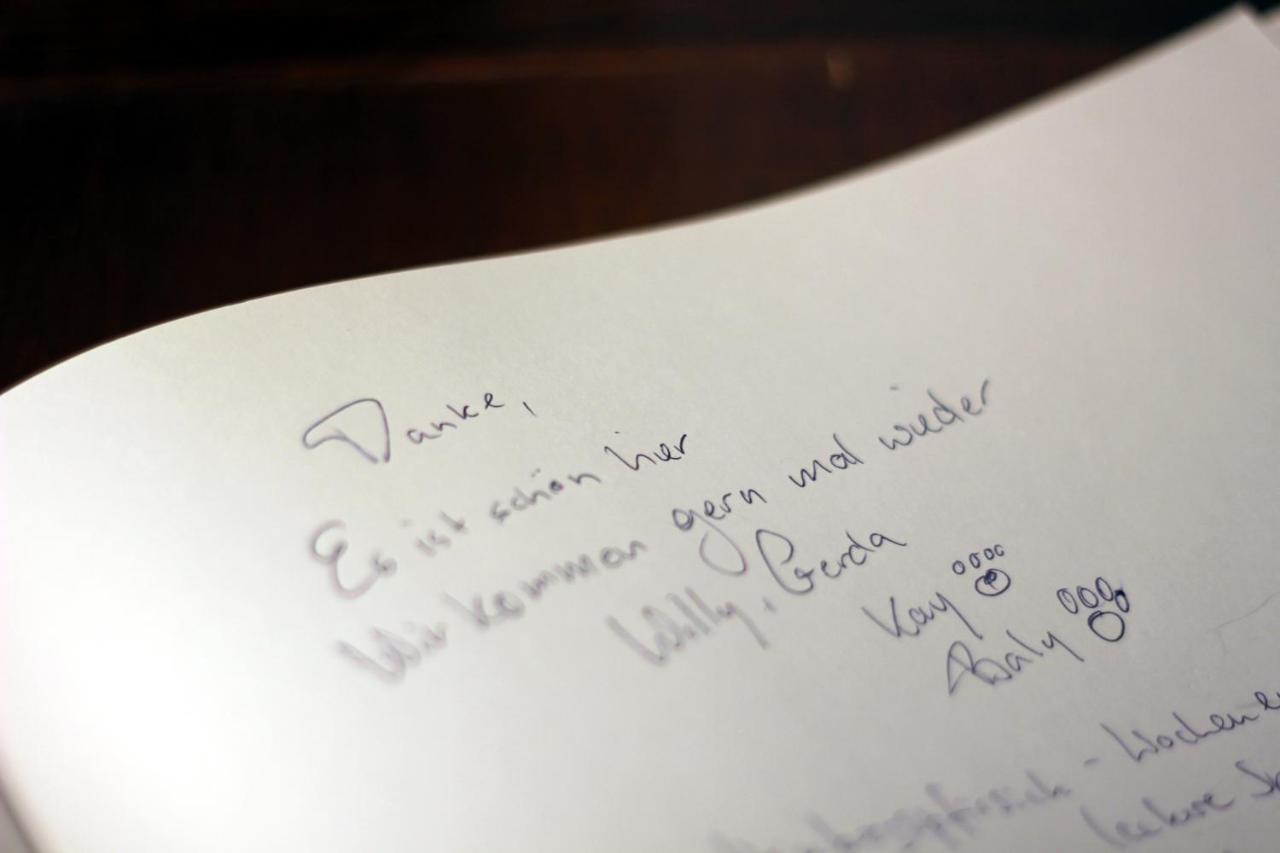 Danke,
Es ist schön hier
Wir kommen gern mal wieder
Willy, Gerda
Kay
- Wochene
leckere